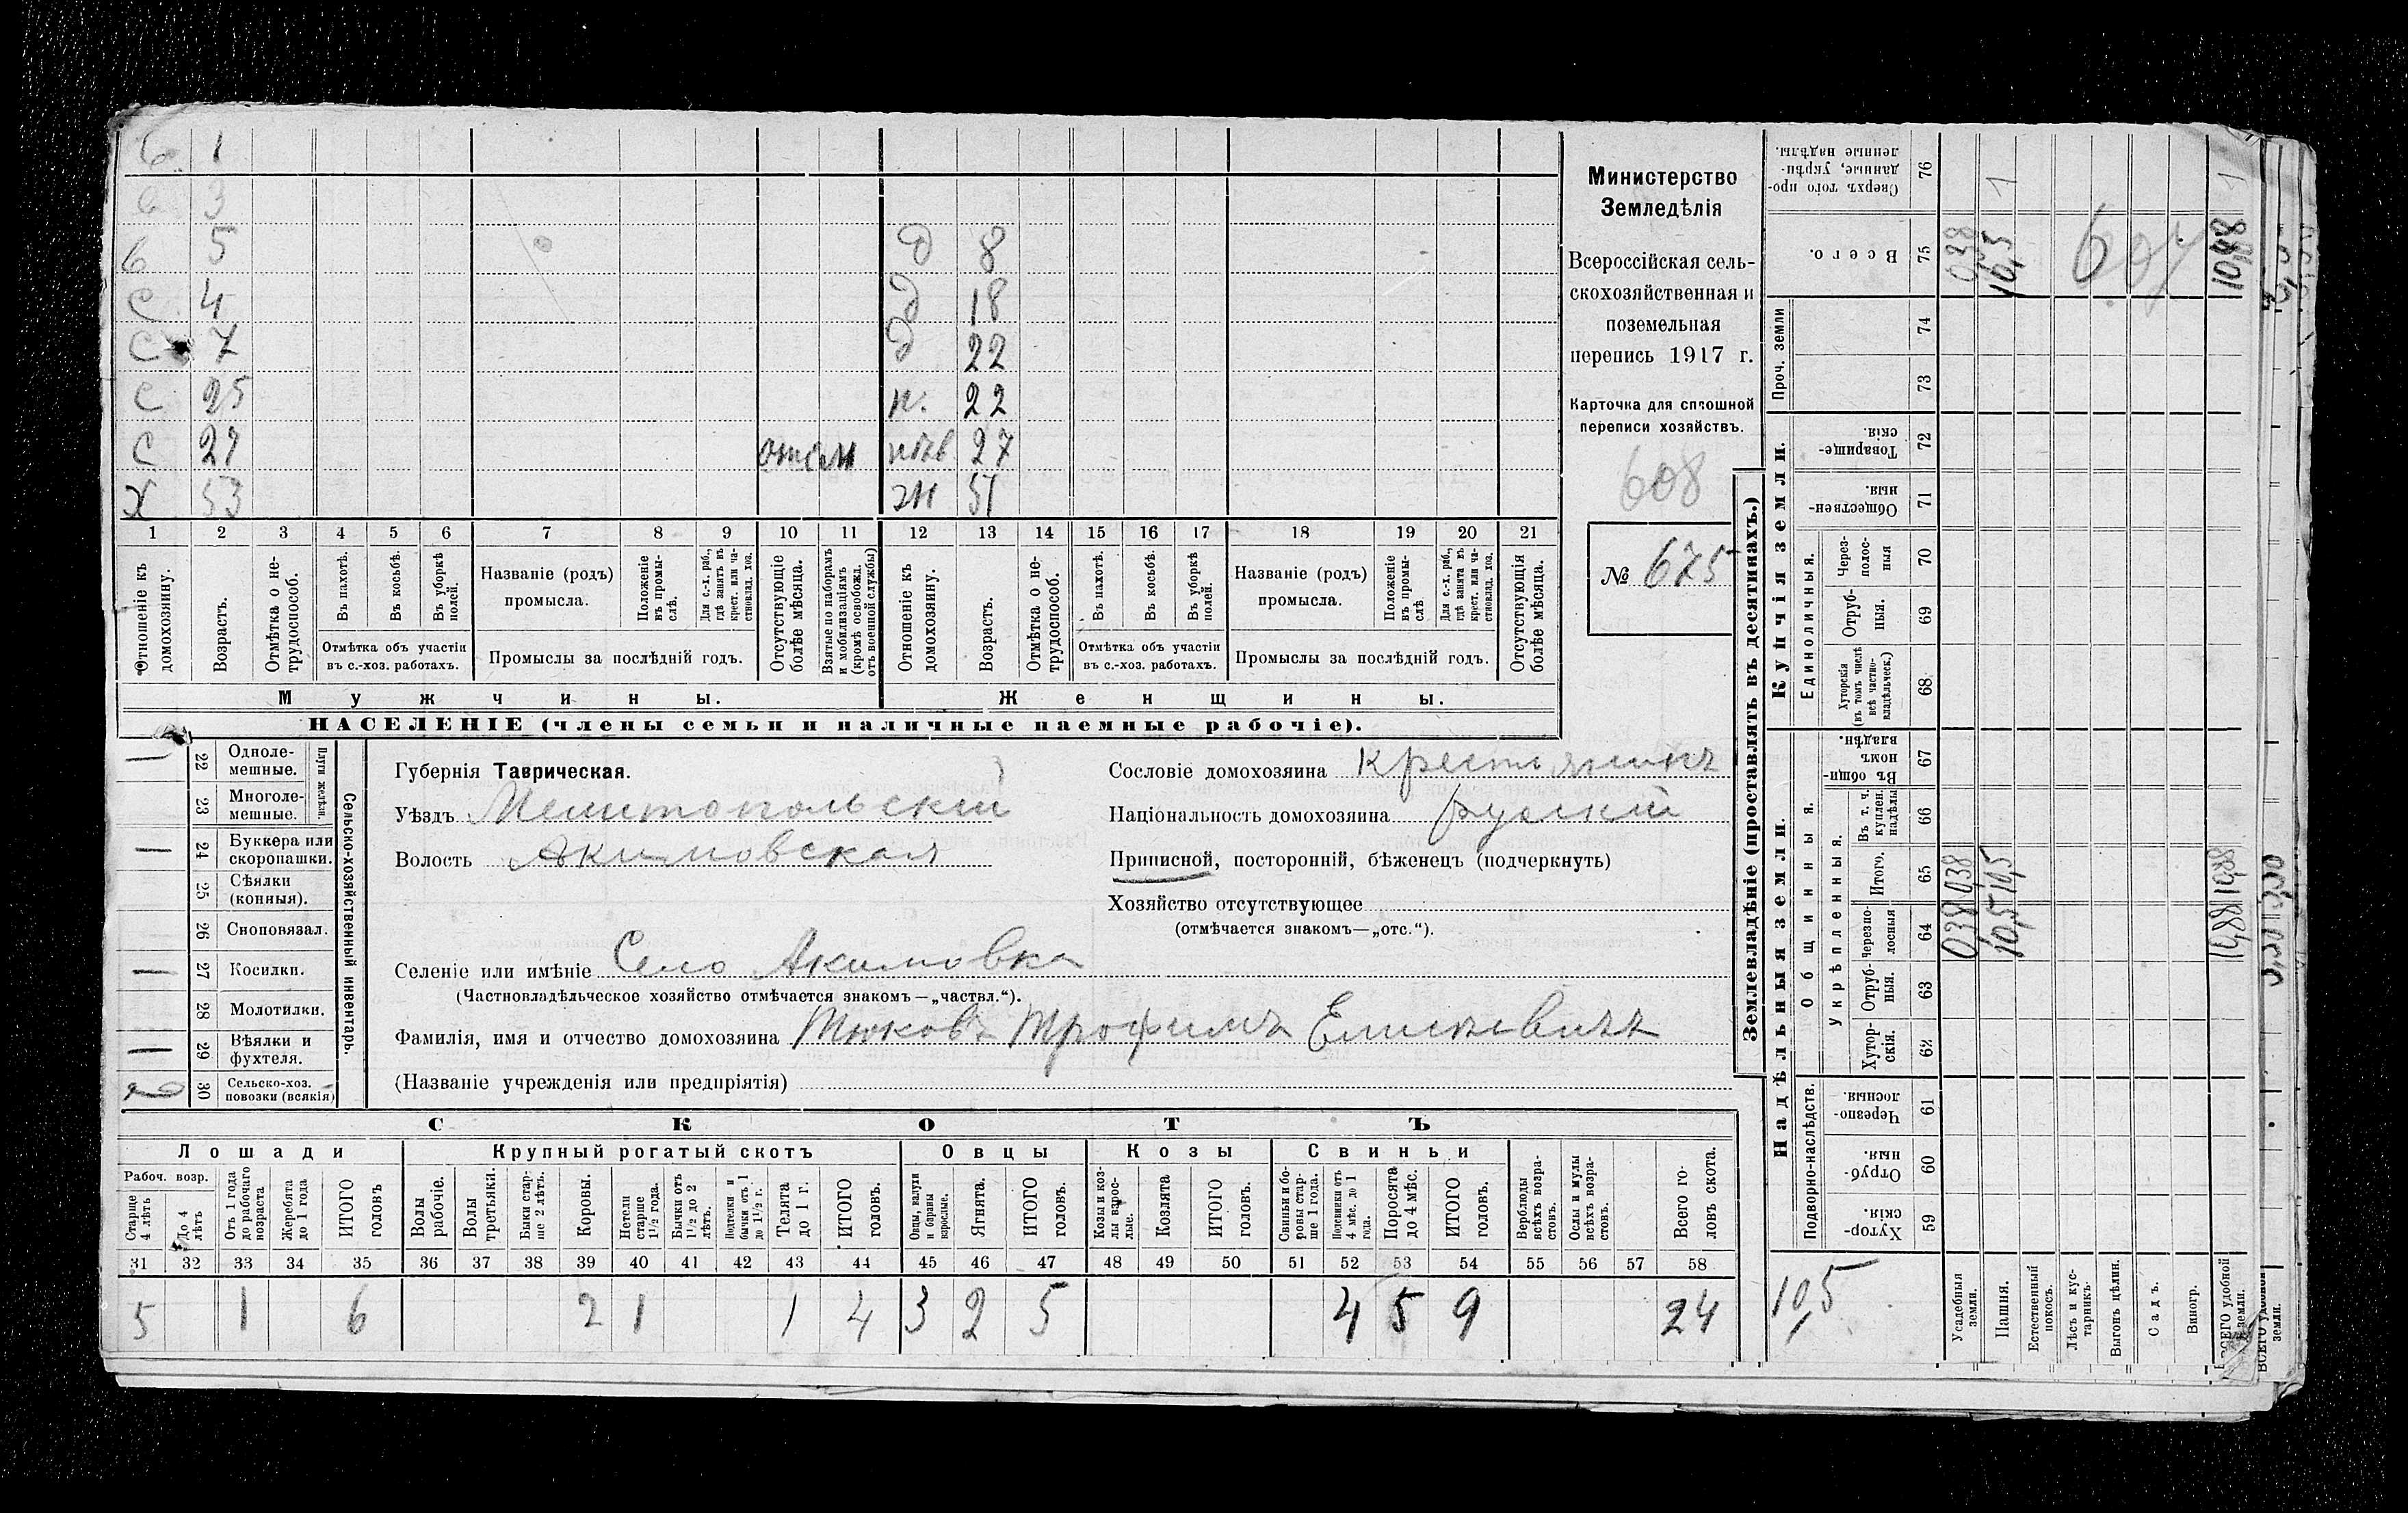 б 1
в 3
б 5 д 8
с 4 д 18
с 7 д 22
с 25 н. 22
с 27 нев 27
х 53 жн 51
1 2 3 4 5 6 7 8 9 10 11 12 13 14 15 16 17 18 19 20 21
Отношеніе къ домохозяину.
Возрастъ.
Отмѣтка о не-трудоспособ.
Въ пахотѣ.
Въ косьбѣ.
Въ уборкѣ полей.
Отмѣтка объ участіи
въ с.-хоз. работахъ.
Названіе (родъ)
промысла.
Положеніе въ промы-слѣ.
Для с.-х. раб., гдѣ занятъ въ крест. или ча-стновлад. хоз.
Промыслы за послѣдній годъ.
Отсутствующіе болѣе мѣсяца.
Взятые по наборамъ и мобилизаціямъ (кромѣ освобожд. отъ военной службы)
Отношеніе къ домохозяину.
Возрастъ.
Отмѣтка о не-трудоспособ.
Въ пахотѣ.
Въ косьбѣ.
Въ уборкѣ полей.
Отмѣтка объ участіи
въ с.-хоз. работахъ.
Названіе (родъ)
промысла.
Положеніе въ промы-слѣ
Для с.-х. раб., гдѣ занята въ крест. или ча-стновлад. хоз.
Промыслы за послѣдній годъ.
Отсутствующія болѣе мѣсяца.
Мужчины. Женщины.
НАСЕЛЕНІЕ (члены семьи и наличные наемные рабочіе).
Министерство
Земледѣлія
Всероссійская сель-
скохозяйственная и
поземельная
перепись 1917 г.
Карточка для сплошной
переписи хозяйствъ.
608
№ 675
Сельско-хозяйственный инвентарь.
Плуги желѣзн.
22 Одноле-мешные.
23 Многоле-мешные.
24 Буккера или скоропашки.
25 Сѣялки (конныя).
26 Сноповязал.
27 Косилки.
28 Молотилки.
29 Вѣялки и фухтеля.
30 Сельско-хоз. повозки (всякія)
Губернія Таврическая.
Уѣздъ Мелитопольскій
Волость Акимовская
Селеніе или имѣніе Село Акимовка
(Частновладѣльческое хозяйство отмѣчается знакомъ—„частвл.“).
Фамилія, имя и отчество домохозяина Тюковъ Трофимъ Елисѣевичъ
(Названіе учрежденія или предпріятія)
Сословіе домохозяина Крестьянинъ
Національность домохозяина русскій
Приписной, посторонній, бѣженецъ (подчеркнуть)
Хозяйство отсутствующее
(отмѣчается знакомъ—„отс.“).
СКОТЪ
Лошади Крупный рогатый скотъ Овцы Козы Свиньи
Рабоч. возр.
Старше 4 лѣтъ
До 4 лѣтъ
Отъ 1 года до рабочаго возраста
Жеребята до 1 года
ИТОГО головъ
Волы рабочіе.
Волы третьяки.
Быки стар-ше 2 лѣтъ.
Коровы.
Нетели старше 1½ года.
Бычки отъ 1½ до 2 лѣтъ.
Подтелки и бычки отъ 1 до 1½ г.
Телята до 1 г.
ИТОГО головъ.
Овцы, валухи и бараны взрослые.
Ягнята.
ИТОГО головъ.
Козы и коз-лы взрос-лые.
Козлята
ИТОГО головъ.
Свиньи и бо-ровы стар-ше 1 года.
Подсвинки отъ 4 мѣс. до 1 года.
Поросята до 4 мѣс.
ИТОГО головъ.
Верблюды всѣхъ возра-стовъ.
Ослы и мулы всѣхъ возра-стовъ.
Всего го-ловъ скота.
31 32 33 34 35 36 37 38 39 40 41 42 43 44 45 46 47 48 49 50 51 52 53 54 55 56 57 58
5 1 6 2 1 1 4 3 2 5 4 5 9 24
Землевладѣніе (проставлять въ десятинахъ.)
Надѣльныя земли. Купчія земли. Проч. земли
Подворно-наслѣдств.
Общинныя.
Укрѣпленныя.
Единоличныя.
Хутор-скія. 59
Отруб-ныя. 60
Черезпо-лосныя. 61
Хутор-скія. 62
Отруб-ныя. 63
Черезпо-лосныя 64
Итого. 65
Въ т. ч. куплен. надѣлы 66
Въ общи-номъ владѣн. 67
Хуторскія (въ томъ числѣ всѣ частно-владѣльческ.) 68
Отруб-ныя. 69
Через-полос-ныя 70
Обществен-ныя. 71
Товарище-скія. 72
73
74
Всего. 75
Сверхъ того про-данные, укрѣп-ленные надѣлы. 76
Усадебныя земли. 038 038 038
Пашня. 10,5 10,5 10,5 1
Естественный покосъ.
Лѣсъ и кус-тарникъ.
Выгонъ цѣлин.
Садъ.
Виногр.
ВСЕГО удобной земли. 10,88 10,88 1088 1
10,5
ВСЕГО удобной земли.